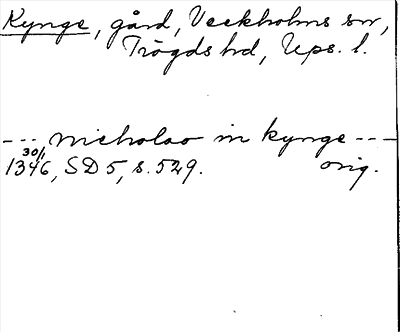 Kynge, gård, Veckholms sn,
Trögds hd, Ups. l.
--- Nicholao in kynge ---
30/1
1346, SD 5, s. 529. orig.